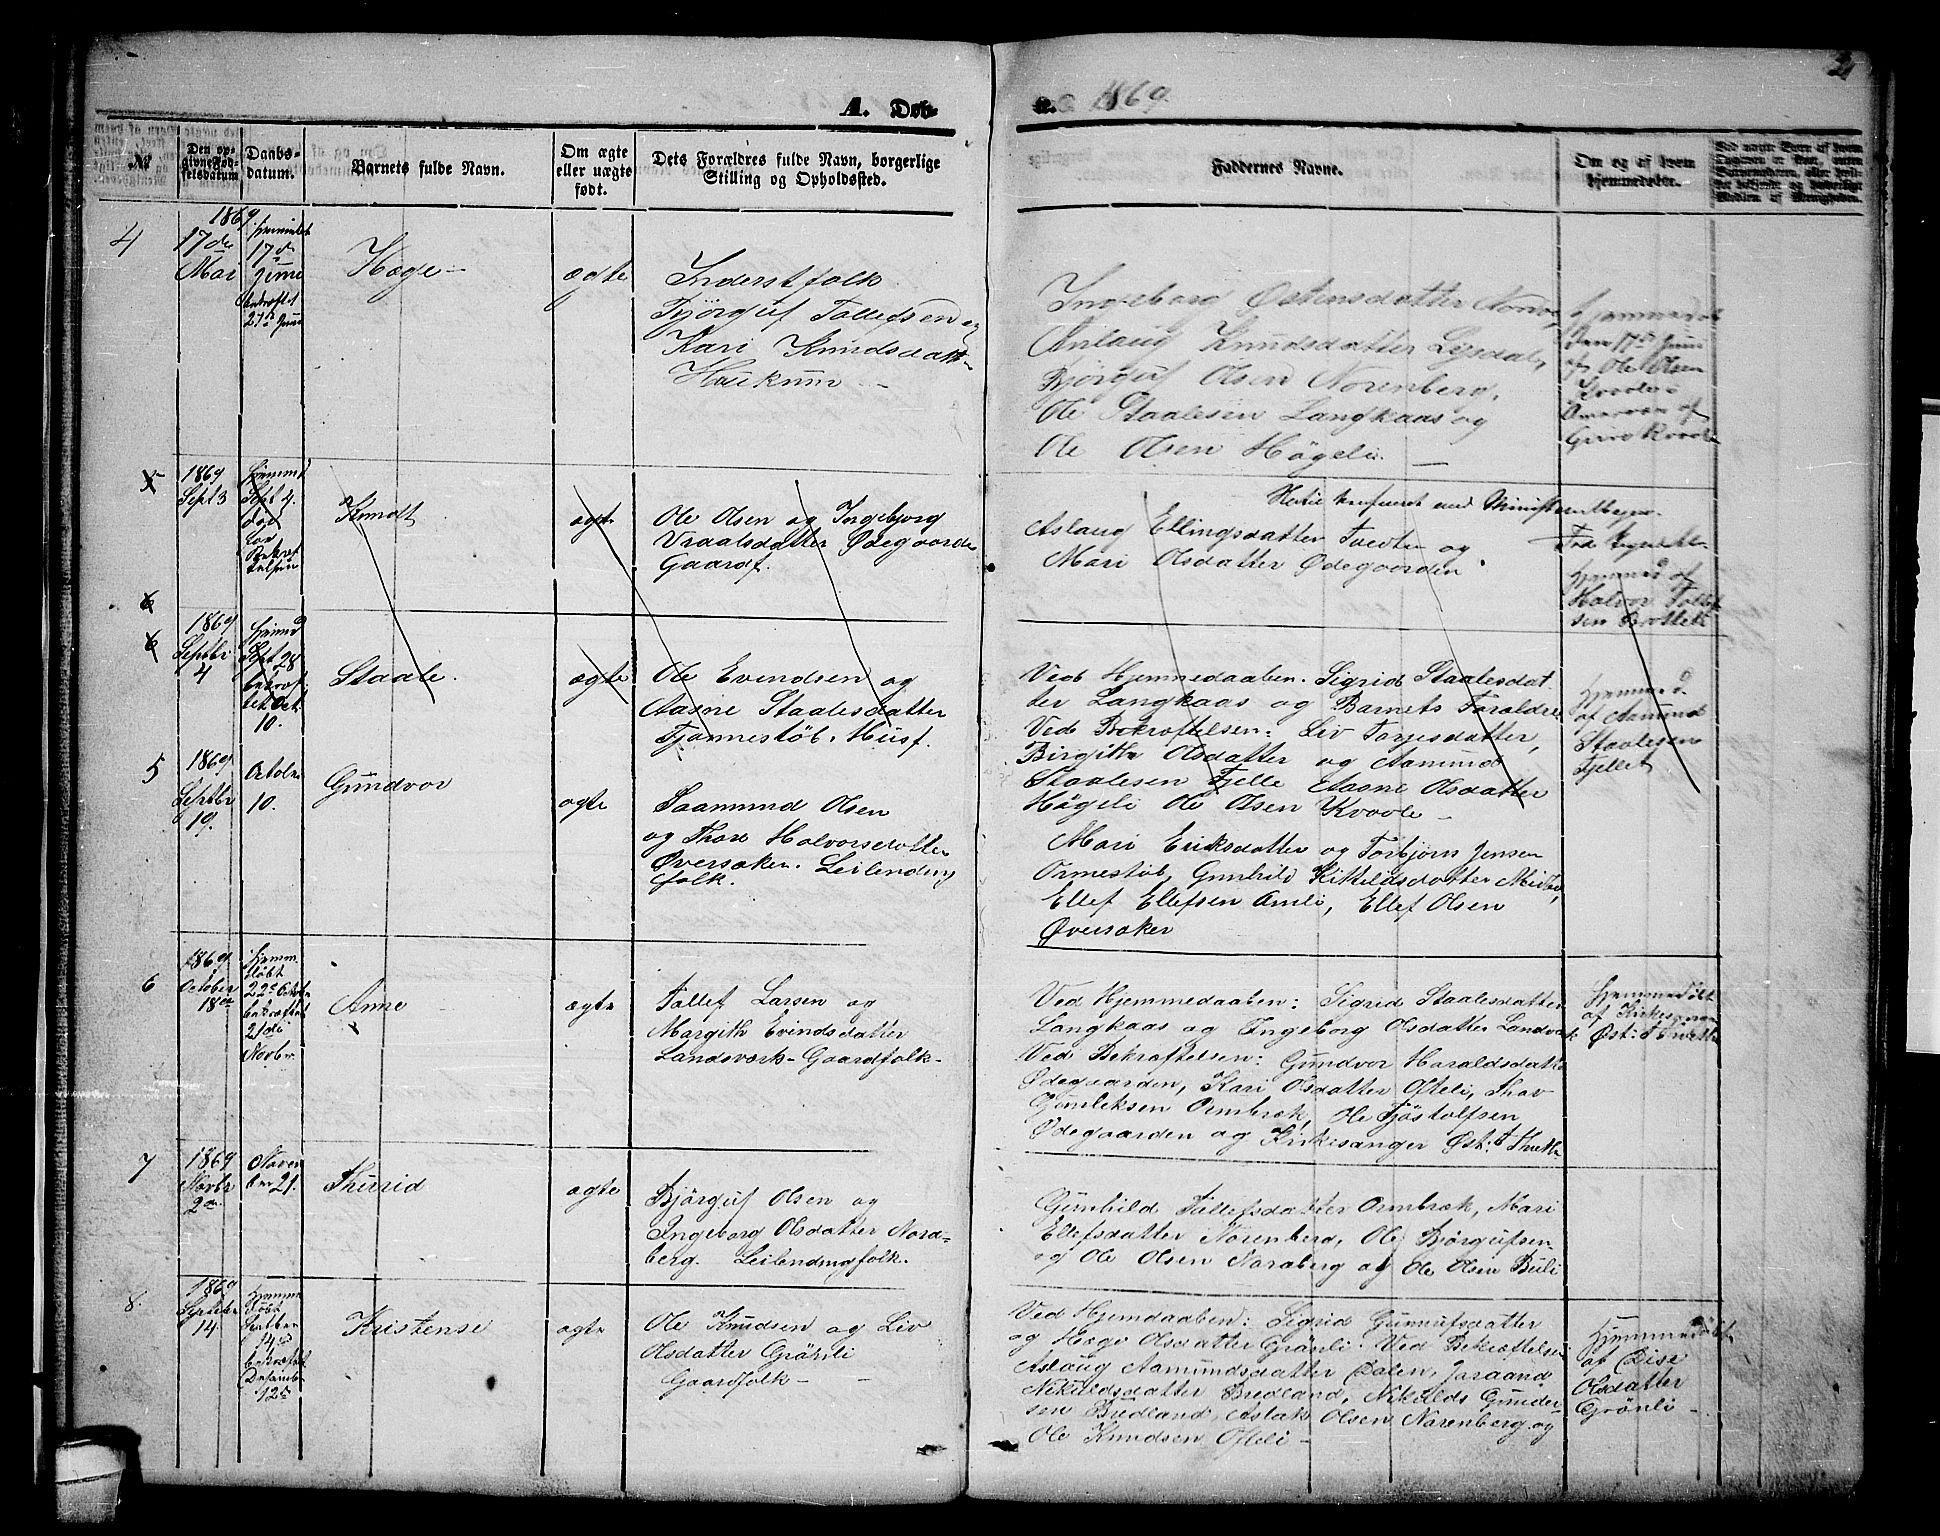 2
A. Døb-
te. 1869.
No
Den op-
givne Fød-
selsdatum
Daabs-
datum.
Barnets fulde Navn.
Om ægte
eller uægte
født.
Dets Forældres fulde Navn, borgerlige
Stilling og Opholdssted.
Faddernes Navne.
Om og af hvem
hjemmedøbt.
4
1869
17de
Mai
17de
Juni
bekræftet
27de Juni
Hæge
ægte
Inderstfolk
Bjørguf Tallefsen og
Kari Knudsdatter
Haukum
Ingeborg Østensdatter
Anlaug Knudsdatter
Bjørguf Olsen Norenberg,
Ole Staalesen Langkaas og
Ole Olsen Høgeli.
Hjemmedøbt
den 17de Juni
af Ole Olsen
Kvaale
5
1869
Sept 3
Hjemmed
Sept 4.
Knudt
ægte
Ole Olsen og Ingebjorg
Vraalsdatter Ødegaarden
Gaardf.
Hertil konfereret med Ministerialbogen.
Aslaug Ellingsdatter Tveten og
Mari Olsdatter Ødegaarden
Hjemmed af
Halvor Tallef
sen
6
6
1869
Septbr
4
Hjemmed
Sept 28
bekræf
tet Oct.
10.
Staale.
ægte
Ole Evindsen og
Aasne Staalesdatter
Tjonnestøb. Husf.
Ved Hjemmedaaben. Sigrid Staalesdat
ter Langkaas og Barnets Forældre
Ved Bekræftelsen: Liv Torjesdatter,
Birgith Olsdatter og Aamund
Staalesen Fjelle Aasne Olsdatter
Høgeli Ole Olsen Kvaale
Hjemmed.
af Aamund
Staalesen
Fjellet
5
1869
Septbr
19.
Octobr
10.
Gundvor
ægte
Saamund Olsen
og Thore Halvorsdatter
Øversaker. Leilendings
folk.
Mari Eriksdatter og Torbjørn Jensen
Ormestøb, Gunhild Kittildsdatter
Ellef Ellefsen Omli, Ellef Olsen
Øversaker
6
1869
October
18de
Hjemme
døbt
22de Octobr
bekræftet
21de
Novbr
Anne
ægte
Tallef Larsen og
Margith Evindsdatter
Landsværk- Gaardfolk-
Ved Hjemmedaaben: Sigrid Staalesdatter
Langkaas og Ingeborg Olsdatter Landværk
Ved Bekræftelsen: Gundvor Haraldsdatter
Ødegaarden, Kari Olsdatter Ofteli, Thor
Gunleksen Ormbræk, Ole Tjøstolfsen
Ødegaarden og Kirkesanger Øst: T
Hjemmedøbt
af Kirkesanger
Øst: T
7
1869
Novbr
2den
Novem
ber 21.
Thurid
ægte
Bjørguf Olsen og
Ingeborg Olsdatter Nord-
berg. Leilendingfolk.
Gunhild Tallefsdatter Ormbræk, Mari
Ellefsdatter Norenberg, Ole Bjørgufsen
og Ole Olsen Noraberg og Ole Olsen Buli
8.
1869
September
14.
Hjemme
døbt
Septber
14de
bekræftet
Desemb
12te
Kristense
ægte
Ole Knudsen og Liv
Olsdatter Grönli
Gaardfolk -
Ved Hjemdaaben: Sigrid Gunnufsdatter
og Hæge Olsdatter Grönli. Ved Bekræftelsen
Aslaug Aamundsdatter Dalen, Joraand
Nikuldsdatter Bredland, Nikulds Gunder
sen Bredland, Aslak Olsen Norenberg og
Ole Knudsen Ofteli -
Hjemmedøbt
af Dise
Olsdatter
Grönli -